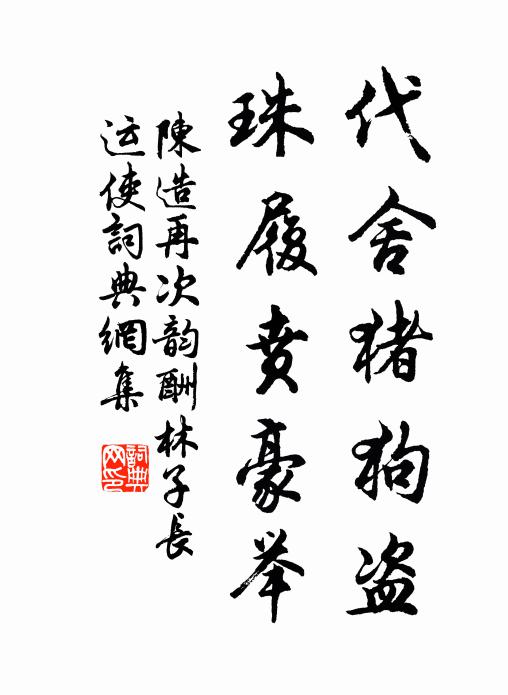 代舍猪狗盗
珠履贲豪举
陳造再次韵酬林子長
运使詞典網集
詞典网印